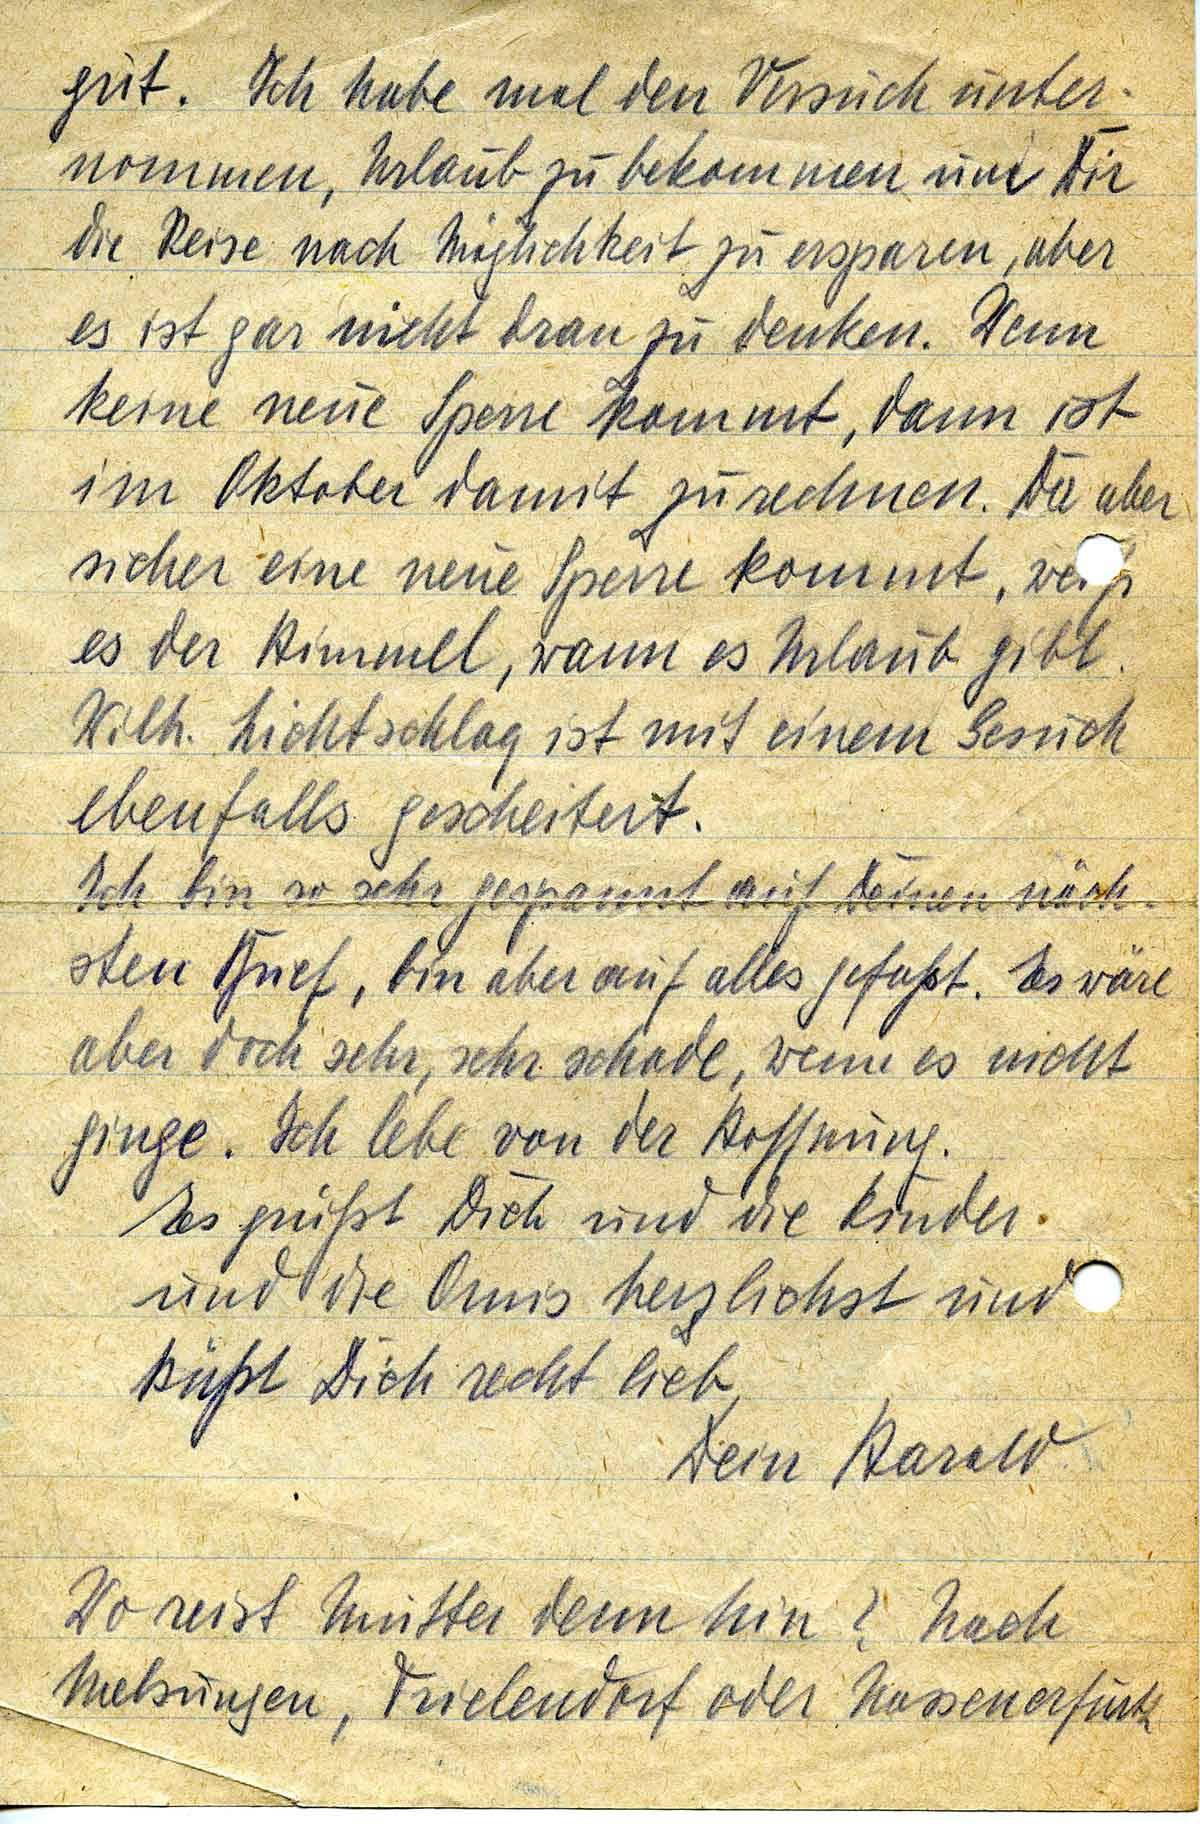 gut. Ich habe mal den Versuch unter-
nommen, Urlaub zu bekommen und Dir
die Reise nach Möglichkeit zu ersparen, aber
es ist gar nicht dran zu denken. Wenn
keine neue Sperre kommt, dann ist
im Oktober damit zu rechnen. Da aber
sicher eine neue Sperre kommt, weiß
es der Himmel, wann es Urlaub gibt.
Wilh. Lichtschlag ist mit einem Gesuch
ebenfalls gescheitert.
Ich bin so sehr gespannt auf Deinen näch-
sten Brief, bin aber auf alles gefaßt. Es wäre
aber doch sehr, sehr schade, wenn es nicht
ginge. Ich lebe von der Hoffnung.
Es grüßt Dich und die Kinder
und die Omis herzlichst und
küßt Dich recht lieb,
Dein Harald
Wo reist Mutter denn hin? Nach
Melsungen, Trielendorf oder Nassenerfurth